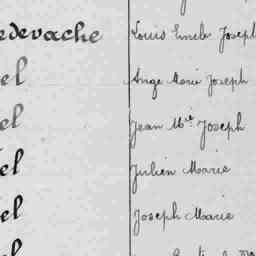 edevache Louis Emile Joseph
el Ange Marie Joseph
el Jean Mie Joseph
el Julien Marie
el Joseph Marie
el